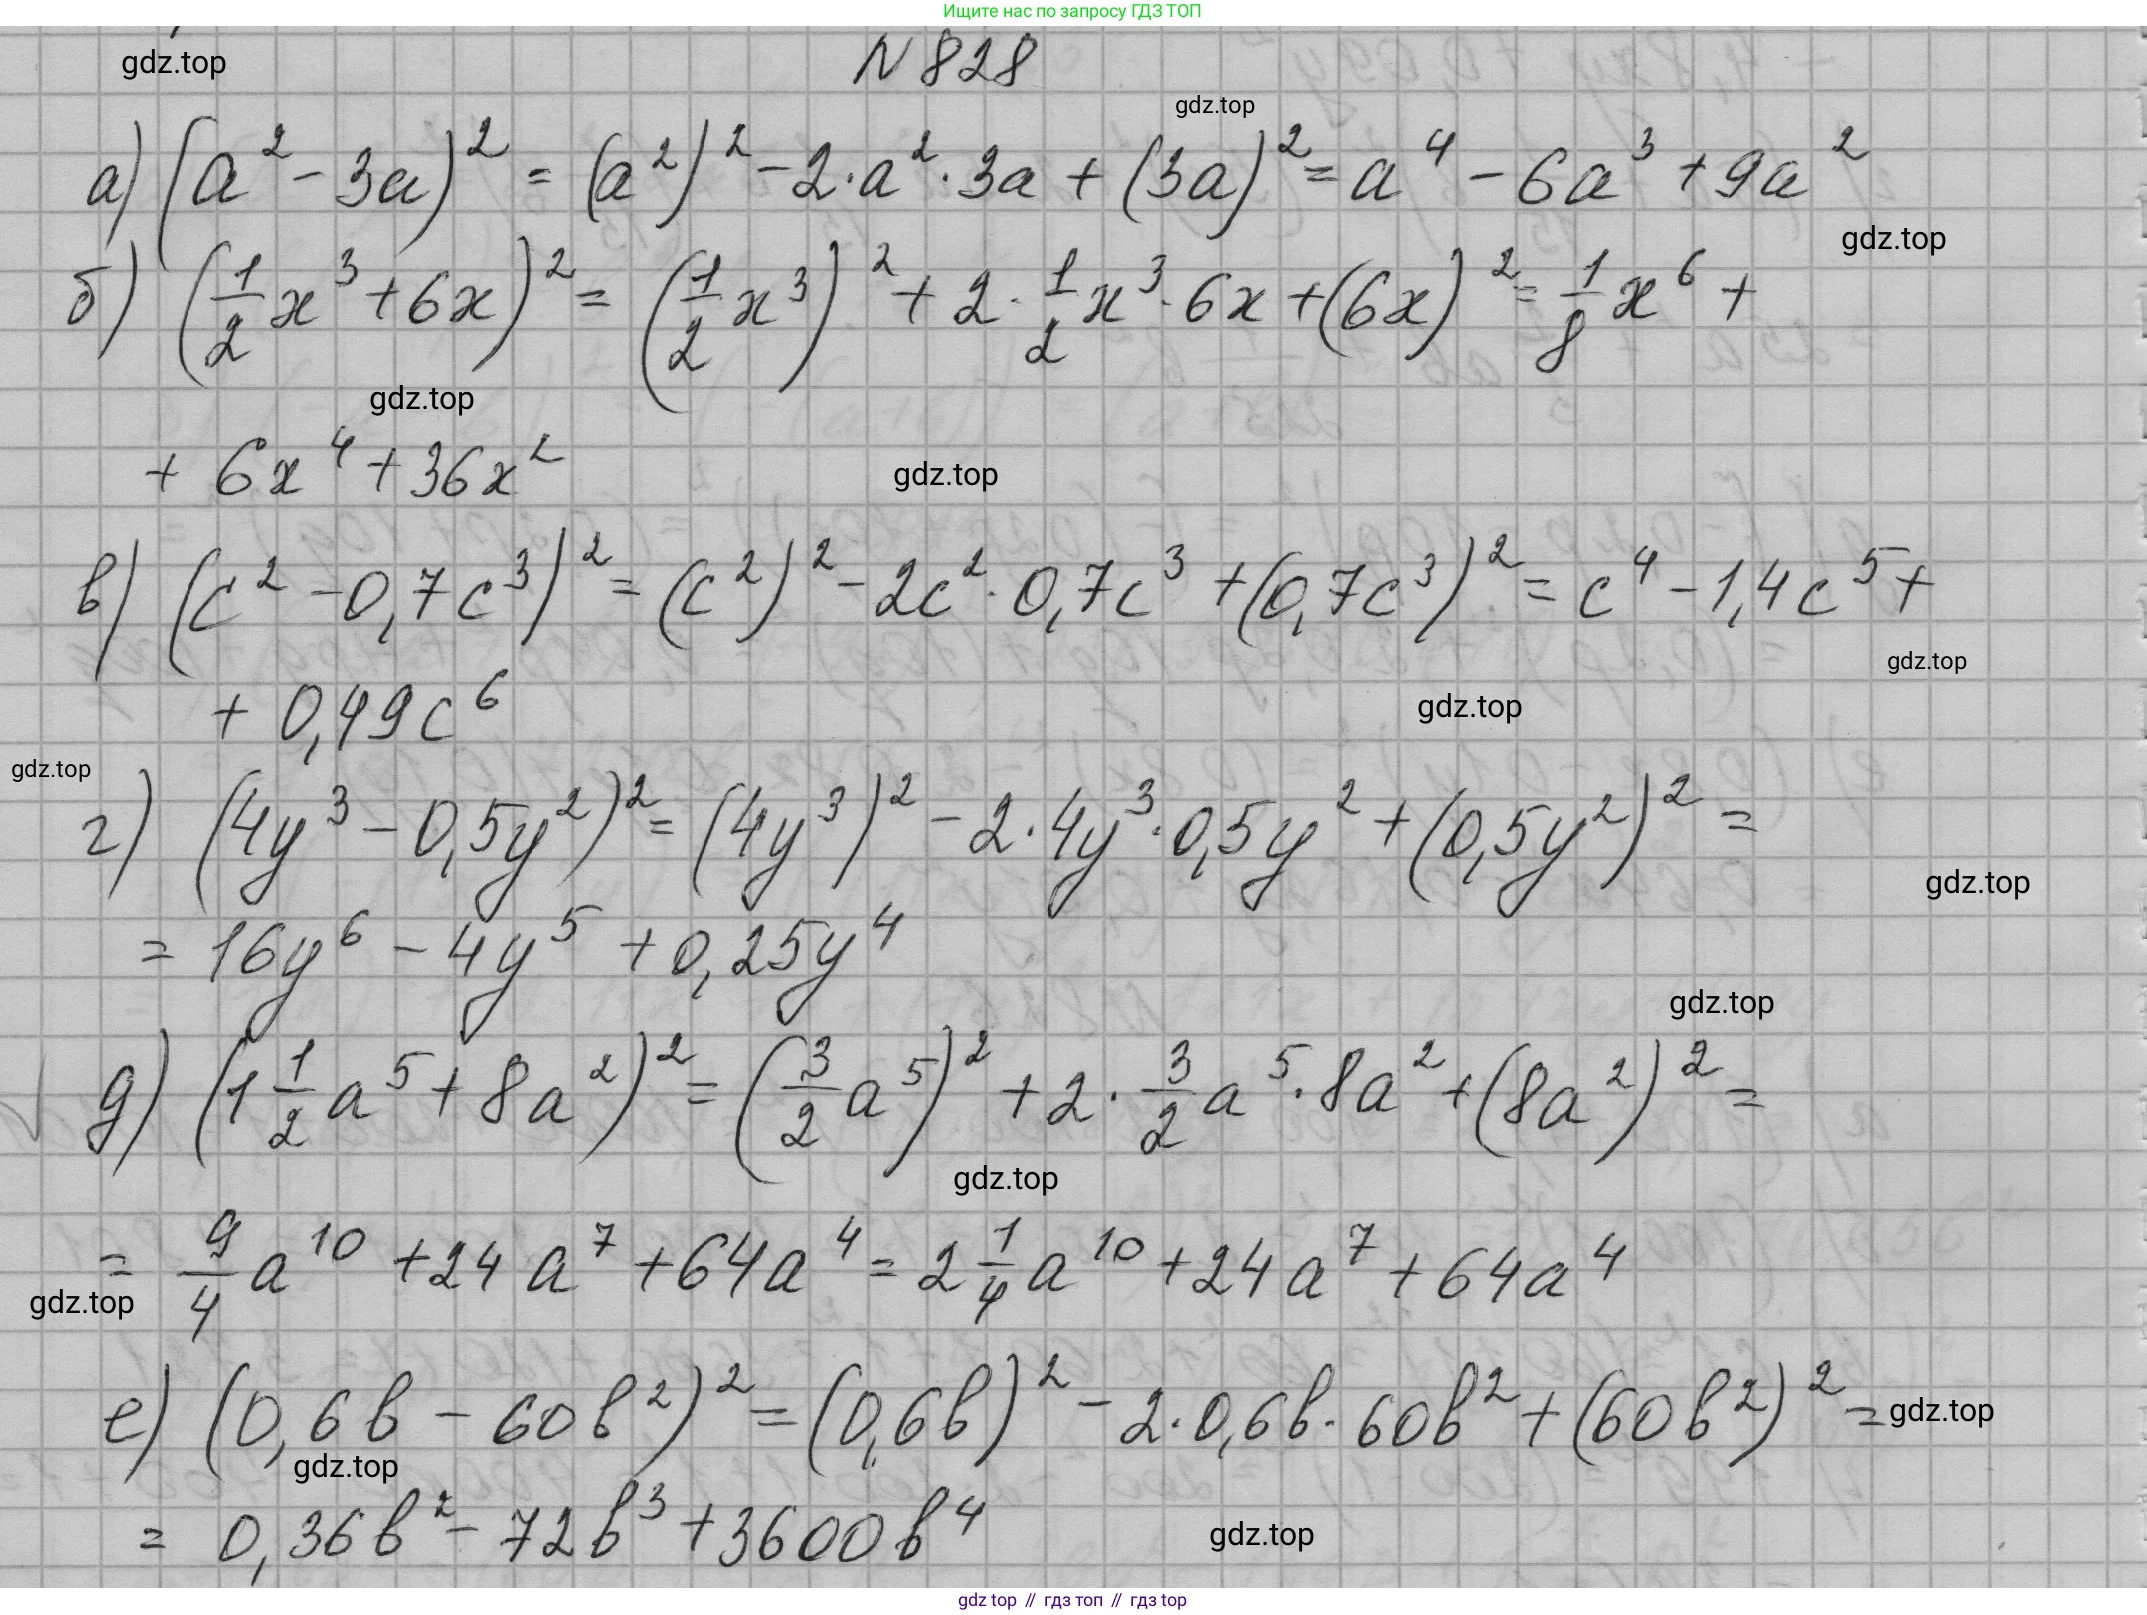 Ищите нас по запросу ГДЗ ТОП
gdz.top
N 828
gdz.top
а) (a² - 3a)² = (a²)² - 2·a²·3a + (3a)² = a⁴ - 6a³ + 9a²
gdz.top
б) (1/2 x³ + 6x)² = (1/2 x³)² + 2·1/2 x³·6x + (6x)² = 1/8 x⁶ +
gdz.top
+ 6x⁴ + 36x²
gdz.top
в) (c² - 0,7c³)² = (c²)² - 2c²·0,7c³ + (0,7c³)² = c⁴ - 1,4c⁵ +
gdz.top
+ 0,49c⁶
gdz.top
gdz.top
г) (4y³ - 0,5y²)² = (4y³)² - 2·4y³·0,5y² + (0,5y²)² =
gdz.top
= 16y⁶ - 4y⁵ + 0,25y⁴
gdz.top
д) (1 1/2 a⁵ + 8a²)² = (3/2 a⁵)² + 2·3/2 a⁵·8a² + (8a²)² =
gdz.top
= 9/4 a¹⁰ + 24a⁷ + 64a⁴ = 2 1/4 a¹⁰ + 24a⁷ + 64a⁴
gdz.top
е) (0,6b - 60b²)² = (0,6b)² - 2·0,6b·60b² + (60b²)² =
gdz.top
gdz.top
= 0,36b² - 72b³ + 3600b⁴
gdz.top
gdz top // гдз топ // гдз top